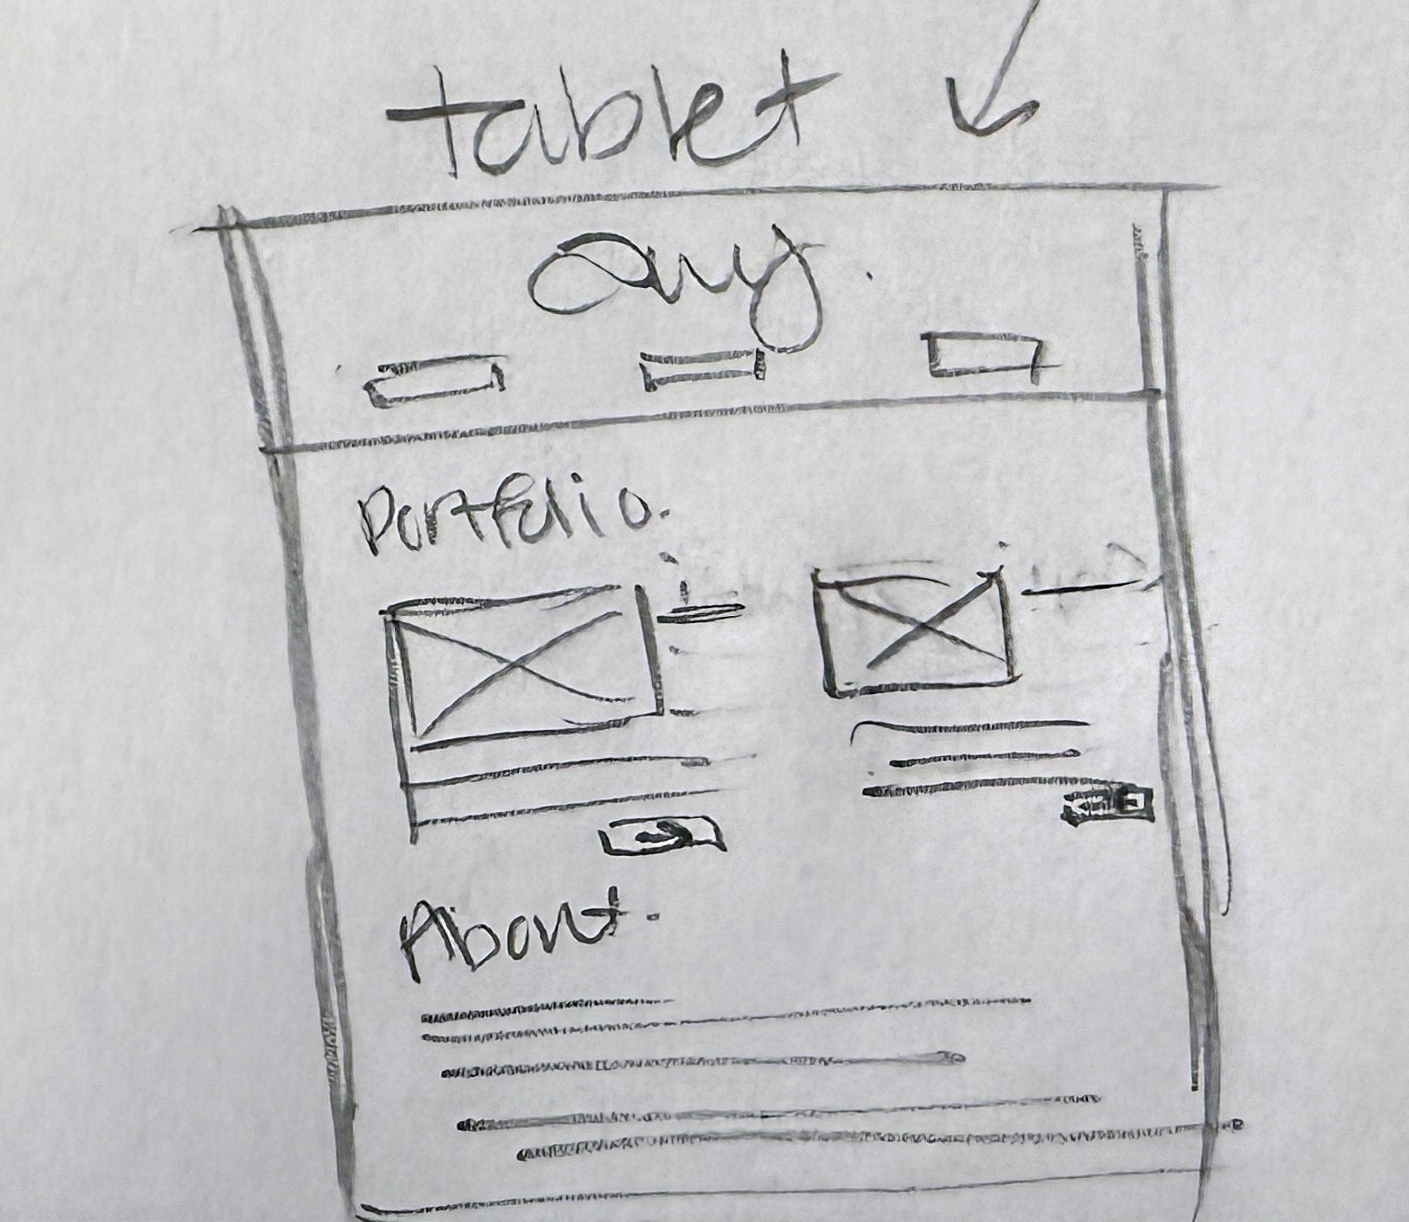 tablet
Portfolio.
About.